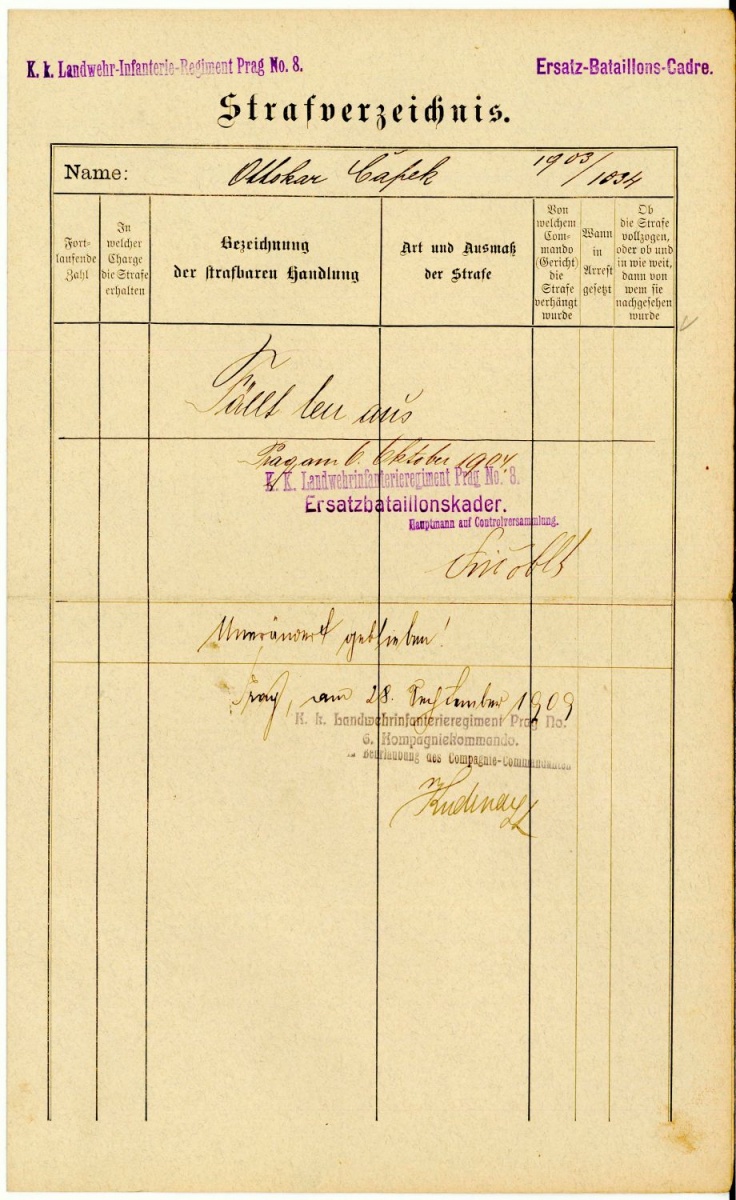 K. k. Landwehr-Infanterie-Regiment Prag No. 8.
Ersatz-Bataillons-Cadre.
Strafverzeichnis.
Name: Ottokar Čapek 1903/1034
Fort-
laufende
Zahl
In
welcher
Charge
die Strafe
erhalten
Bezeichnung
der strafbaren Handlung
Art und Ausmaß
der Strafe
Von
welchem
Com-
mando
(Gericht)
die
Strafe
verhängt
wurde
Wann
in
Arrest
gesetzt
Ob
die Strafe
vollzogen,
oder ob und
in wie weit,
dann von
wem sie
nachgesehen
wurde
Fällt leer aus
Prag am 6. Oktober 1904
K. K. Landwehrinfanterieregiment Prag No. 8.
Ersatzbataillonskader.
Hauptmann auf Controlversammlung.
Unverändert geblieben!
Prag, am 28. September 1909
K. k. Landwehrinfanterieregiment Prag No.
6. Kompagniekommando.
Beurlaubung des Compagnie-Commandanten